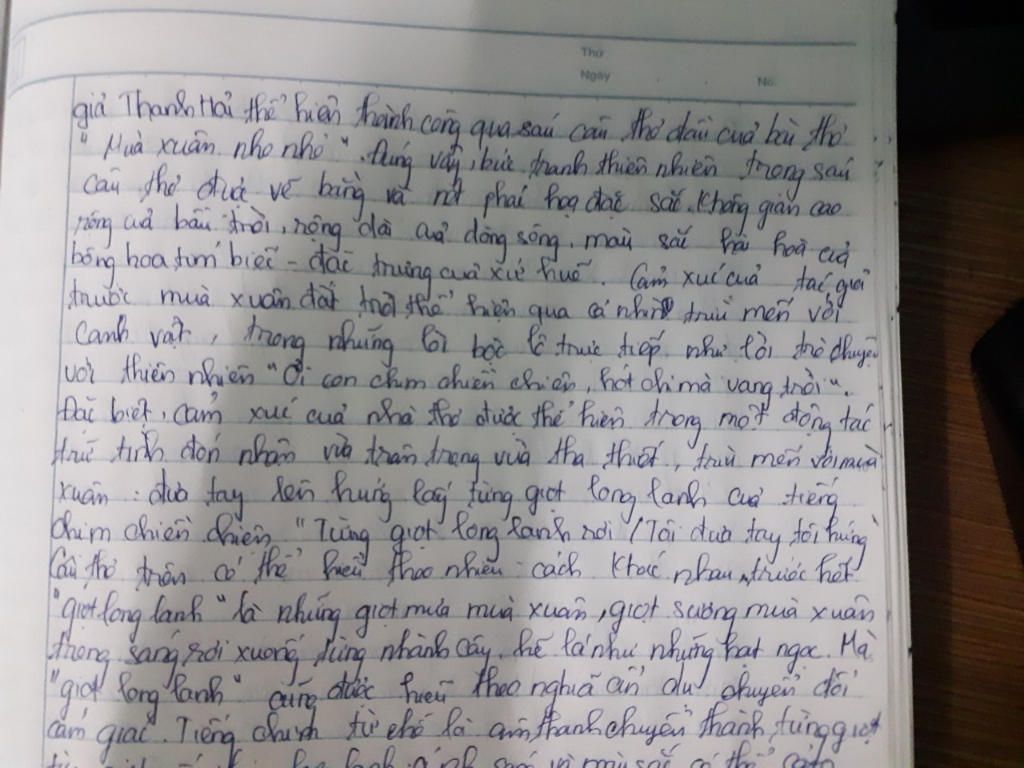 Thứ
Ngày No.
giả Thanh Hải thể hiện thành công qua sáu câu thơ đầu của bài thơ
"Mùa xuân nho nhỏ". Đúng vậy, bức tranh thiên nhiên trong sáu
câu thơ được vẽ bằng vài nét phác hoạ đặc sắc. Không gian cao
rộng của bầu trời, rộng dài của dòng sông, màu sắc hài hoà của
bông hoa tím biếc - đặc trưng của xứ Huế. Cảm xúc của tác giả
trước mùa xuân đất trời thể hiện qua cái nhìn trìu mến với
cảnh vật, trong những lời bộc lộ trực tiếp như lời trò chuyện
với thiên nhiên "Ơi con chim chiền chiện, hót chi mà vang trời".
Đặc biệt, cảm xúc của nhà thơ được thể hiện trong một động tác
trữ tình đón nhận vừa trân trọng vừa tha thiết, trìu mến với mùa
xuân: đưa tay lên hứng lấy từng giọt long lanh của tiếng
chim chiền chiện "Từng giọt long lanh rơi / Tôi đưa tay tôi hứng"
Câu thơ trên có thể hiểu theo nhiều cách khác nhau, trước hết
"giọt long lanh" là những giọt mưa mùa xuân, giọt sương mùa xuân
trong sáng rơi xuống từng nhành cây, kẽ lá như những hạt ngọc. Mà
"giọt long lanh" cũng được hiểu theo nghĩa ẩn dụ chuyển đổi
cảm giác. Tiếng chim từ chỗ là âm thanh chuyển thành từng giọt